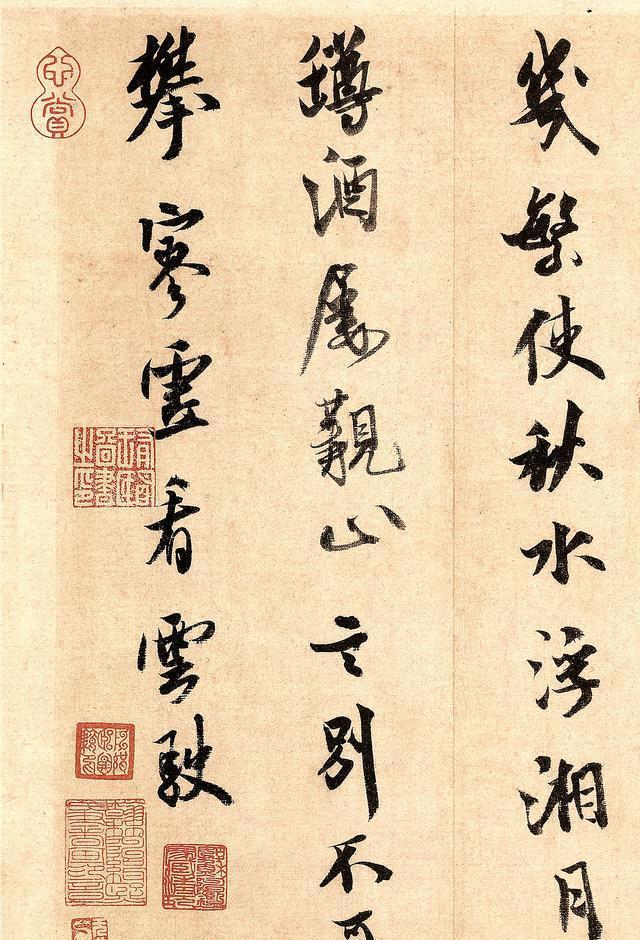 幾繁使秋水浮湘月
罇酒屢覲山言別不可
攀寥看雲駛